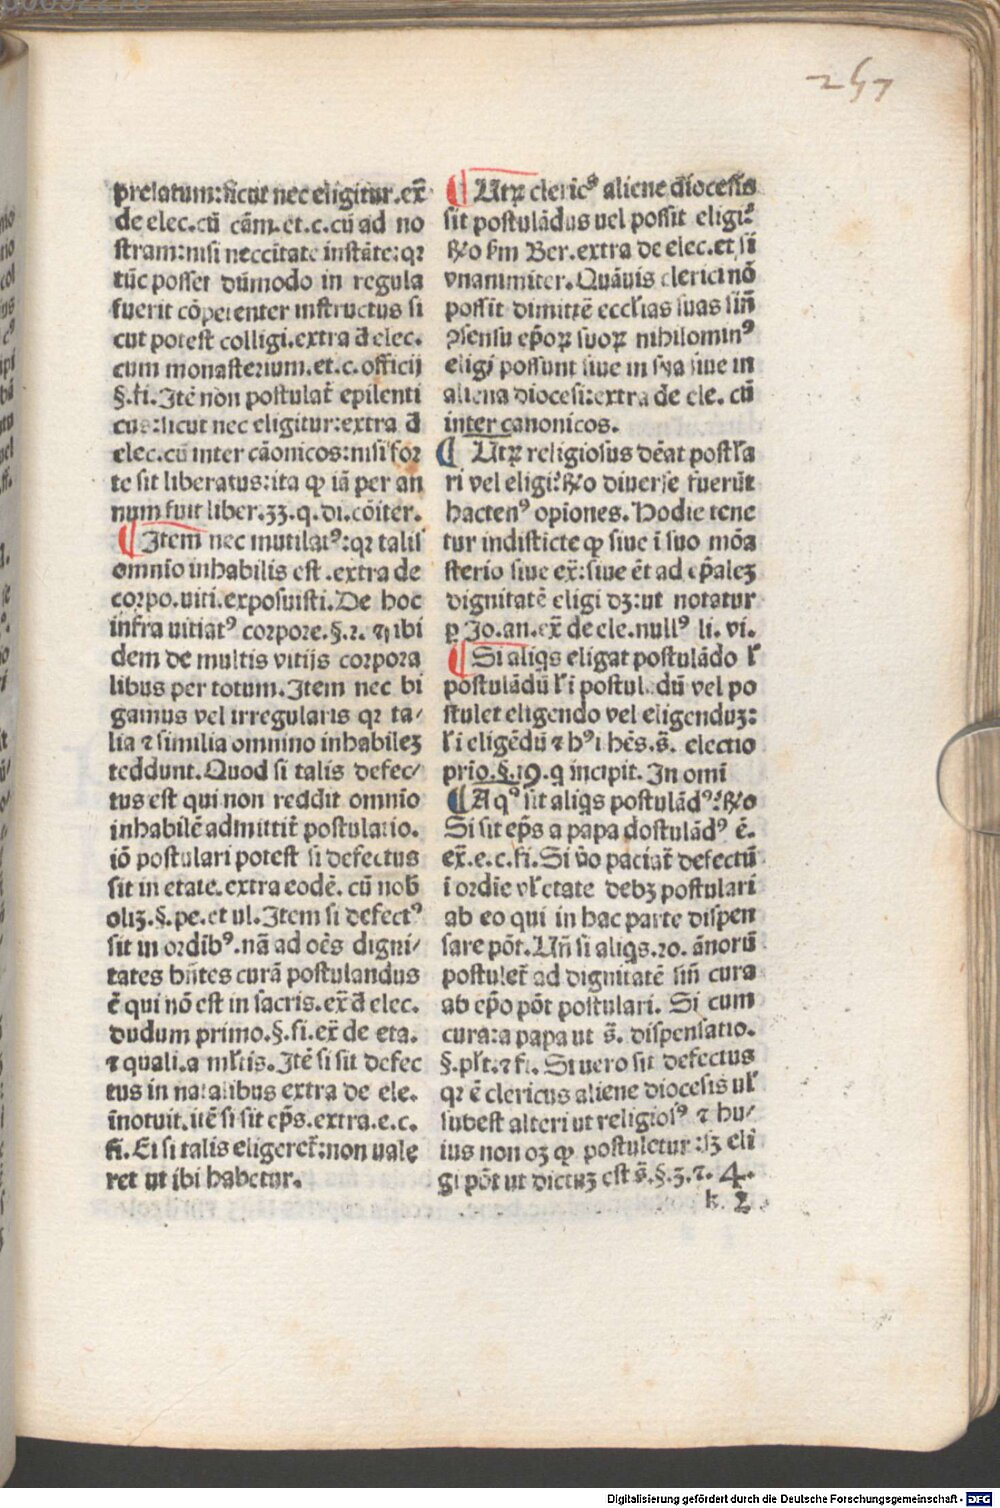 257
prelatum:sicut nec eligitur.ex̄
de elec.cū cām.et.c.cū ad no
stram:nisi neccitate instāte:qꝛ
tūc posset dūmodo in regula
fuerit cōpetenter instructus si
cut potest colligi.extra đ elec.
cum monasterium.et.c.officij
§.fi.Itē non postulat̄ epilenti
cus:sicut nec eligitur:extra đ
elec.cū inter cāonicos:nisi foꝛ
te sit liberatus:ita ꝙ iā per an
num fuit liber.33.q.di.cōiter.
¶ Item nec mutilatꝰ:qꝛ talis
omnio inhabilis est.extra de
coꝛpo.uiti.exposuisti.De hoc
infra uitiatꝰ coꝛpore.§.2. ⁊ ibi
dem de multis vitijs coꝛpoꝛa
libus per totum.Item nec bi
gamus vel irregularis qꝛ ta/
lia ⁊ similia omnino inhabileꝫ
reddunt.Quod si talis defec/
tus est qui non reddit omnio
inhabilē admittit̄ postulatio.
iō postulari potest si defectus
sit in etate.extra eodē. cū nob̄
oliꝫ.§.pe.et ul.Item si defectꝰ
sit in oꝛdībꝰ.nā ad oēs digni/
tates hn̄tes curā postulandus
ē qui nō est in sacris.ex̄ đ elec.
dudum primo.§.fi.ex̄ de eta.
⁊ quali.a ml̄tis.Itē si sit defec
tus in natalibus extra de ele.
īnotuit.itē si sit ep̄s.extra.e.c.
fi.Et si talis eligeret̄:non uale
ret ut ibi habetur.
¶ Utꝝ clericꝰ aliene diocesis
sit postulādus uel possit eligi?
R̄o s̄m Ber.extra de elec.et si
vnanimiter.Quāuis clerici nō
possit dimittē eccl̄ias suas sin̄
ꝯsensu ep̄oꝝ suoꝝ nihilominꝰ
eligi possunt siue in sua siue in
aliena diocesi:extra de ele. cū
inter canonicos.
¶ Utꝝ religiosus dēat postl̄a
ri vel eligi?R̄o diuerse fuerūt
hactenꝰ opiones.Hodie tene
tur indisticte ꝙ siue ī suo mōa
sterio siue ex̄:siue ēt ad ep̄aleꝫ
dignitatē eligi dꝫ:ut notatur
ꝑ Jo.an.ex̄ de ele.nullꝰ li. vi.
¶ Si aliqs eligat postulādo l̄
postulādū l̄ i postulādū vel po
stulet eligendo vel eligenduꝫ:
l̄ i eligēdū ⁊ hꝰi hēs.s̄. electio
prio.§.19.q incipit.In omī
¶ A qꝰ sit aliqs postulādꝰ?R̄o
Si sit ep̄s a papa dostulādꝰ ē.
ex̄.e.c.fi.Si v̄o paciat̄ defectū
ī oꝛdīe vl̄ etate debꝫ postulari
ab eo qui in hac parte dispen
sare pōt.Un̄ si aliqs.20. ānoꝛū
postulet̄ ad dignitatē sin̄ cura
ab ep̄o pōt postulari. Si cum
cura:a papa ut s̄. dispensatio.
§.pl̄t.⁊ fi. Si uero sit defectus
qꝛ ē clericus aliene diocesis ul̄
subest alteri ut religiosꝰ ⁊ hu/
ius non oꝫ ꝙ postuletur:sꝫ eli
gi pōt ut dictuꝫ est s̄.§.3.⁊.4.
k 2
Digitalisierung gefördert durch die Deutsche Forschungsgemeinschaft - DFG